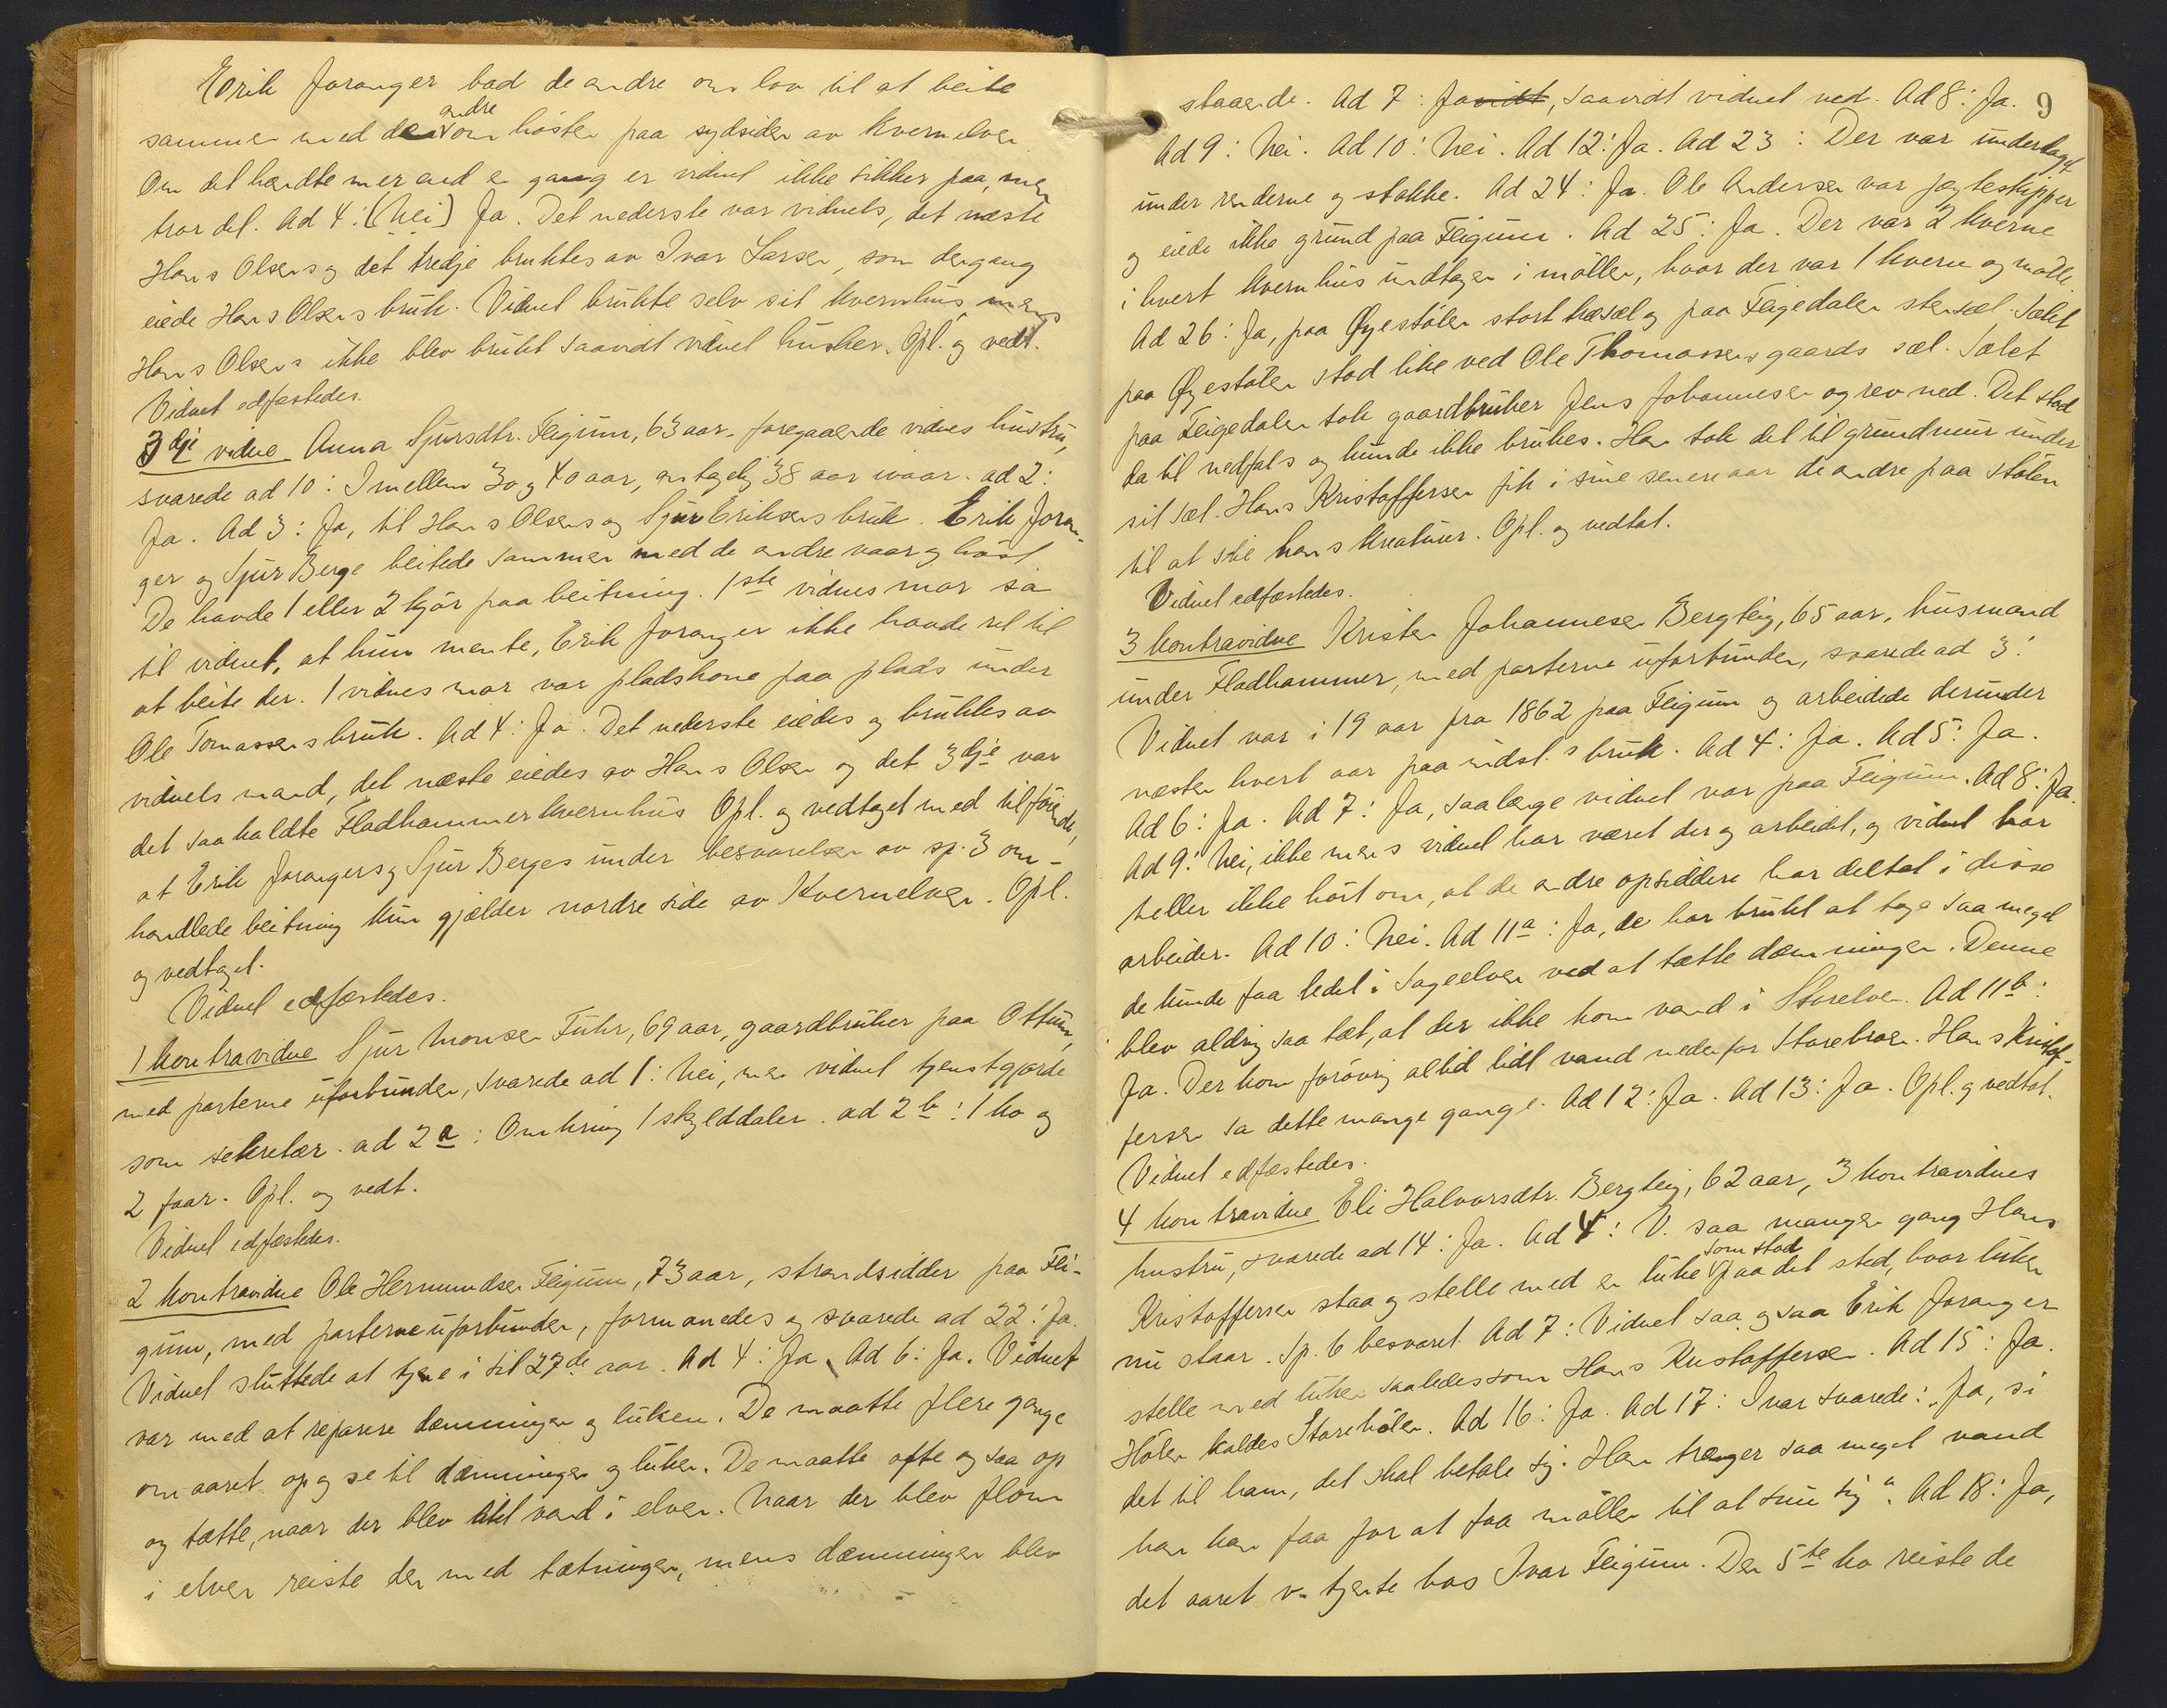 Erik Joranger bad de andre om lov til at beite
sammen med dem andre om høsten paa sydsiden av Kvernelven.
Om det hændte mer end en gang er vidnet ikke sikker paa, men
tror det. Ad 4: (Nei) Ja. Det nederste var vidnets, det næste
Hans Olsens og det tredje bruktes av Ivar Larsen, som dengang
eiede Hans Olsens bruk. Vidnet brukte selv sit kvernhus, mens
Hans Olsens ikke blev brukt saavidt vidnet husker. Opl. og vedt.
Vidnet edfæstedes.
3dje vidne Anna Sjursdtr. Feigum, 63 aar, foregaaende vidnes hustru,
svarede ad 10: Imellem 30 og 40 aar, antagelig 38 aar ivaar. ad 2:
Ja. Ad 3: Ja, til Hans Olsens og Sjur Eriksens bruk. Erik Joran-
ger og Sjur Berge beitede sammen med de andre vaar og høst
De havde 1 eller 2 kjør paa beitning. 1ste vidnes mor sa
til vidnet, at hun mente, Erik Joranger ikke havde ret til
at beite der. 1 vidnes mor var pladskone paa plads under
Ole Tomassens bruk. Ad 4: Ja. Det nederste eiedes og bruktes av
vidnets mand, det næste eiedes av Hans Olsen og det 3dje var
det saakaldte Fladhammerkvernhus Opl. og vedtaget med tilføiende,
at Erik Jorangers og Sjur Berges under besvarelsen av sp. 3 om-
handlede beitning kun gjælder nordre side av Kvernelven. Opl.
og vedtaget.
Vidnet edfæstedes.
1 kontravidne Sjur Monsen Fuhr, 69 aar, gaardbruker paa Ottum,
med parterne uforbunden, svarede ad 1: Nei, men vidnet tjenstgjorde
som sekretær. ad 2a: Omkring 1 skylddaler. ad 2b: 1 ko og
2 faar. Opl. og vedt.
Vidnet edfæstedes.
2 kontravidne Ole Hermundsen Feigum, 73 aar, strandsidder paa Fei-
gum, med parterne uforbunden, formanedes og svarede ad 22: Ja.
Vidnet sluttede at tjene i sit 27de aar. Ad 4: Ja. Ad 6: Ja. Vidnet
var med at reparere dæmningen og luken. De maatte flere gange
om aaret op og se til dæmningen og luken. De maatte ofte og saa op
og tætte, naar der blev litet vand i elven. Naar der blev flom
i elven reiste den med tætningen, mens dæmningen blev
9
staaende. Ad 7: Javidt, saavidt vidnet ved. Ad 8: Ja.
Ad 9: Nei. Ad 10: Nei. Ad 12: Ja. Ad 23: Der var underlaget
under renderne og stokke. Ad 24: Ja. Ole Andersen var jægteskipper
og eiede ikke grund paa Feigum. Ad 25: Ja. Der var 2 kverne
i hvert kvernhus undtagen i møllen, hvor der var 1 kvern og mølle
Ad 26: Ja, paa Øyestølen stort træsel og paa Feigedalen stensel. Selet
paa Øyestølen stod like ved Ole Thomassens gaards sæl. Sælet
paa Feigedalen tok gaardbruker Jens Johannesen og rev ned. Det stod
da til nedfals og kunde ikke brukes. Han tok det til grundmur under
sit sæl. Hans Kristoffersen fik i sine senere aar de andre paa stølen
til at stie hans kreaturer. Opl. og vedtat.
Vidnet edfæstedes.
3 kontravidne Kristen Johannesen Bergteig, 65 aar, husmand
under Fladhammer, med parterne uforbunden, svarede ad 3:
Vidnet var i 19 aar fra 1862 paa Feigum og arbeidede derunder
næsten hvert aar paa indst.s bruk. Ad 4: Ja. Ad 5: Ja.
Ad 6: Ja. Ad 7: Ja, saalænge vidnet var paa Feigum. Ad 8: Ja.
Ad 9: Nei, ikke mens vidnet har været der og arbeidet, og vidnet har
heller ikke hørt om, at de andre opsiddere har deltat i disse
arbeider. Ad 10: Nei. Ad 11a: Ja, de har brukt at tage saa meget
de kunde faa ledet i Sageelven ved at tætte dæmningen. Denne
blev aldrig saa tæt, at der ikke kom vand i Storelven. Ad 11b:
Ja. Der kom forøvrig altid lidt vand nedenfor Storebroen. Hans Kristof-
fersen sa dette mange gange. Ad 12: Ja. Ad 13: Ja. Opl. og vedtat.
Vidnet edfæstedes.
4 kontravidne Eli Halvorsdtr. Bergteig, 62 aar, 3 kontravidnes
hustru, svarede ad 14: Ja. Ad 4: V. saa mangen gang Hans
Kristoffersen staa og stelle med en luke som stod paa det sted, hvor luken
nu staar. Sp. 6 besvaret. Ad 7: Vidnet saa og saa Erik Joranger
stelle med luken saaledes som Hans Kristoffersen. Ad 15: Ja.
Hølen kaldes Storehølen. Ad 16: Ja. Ad 17: Ivar svarede: „Ja, si
det til ham, det skal betale sig. Han trænger saa meget vand
han kan faa for at faa møllen til at snu sig“. Ad 18: Ja,
det aaret v. tjente hos Ivar Feigum. Den 5te ko reiste de